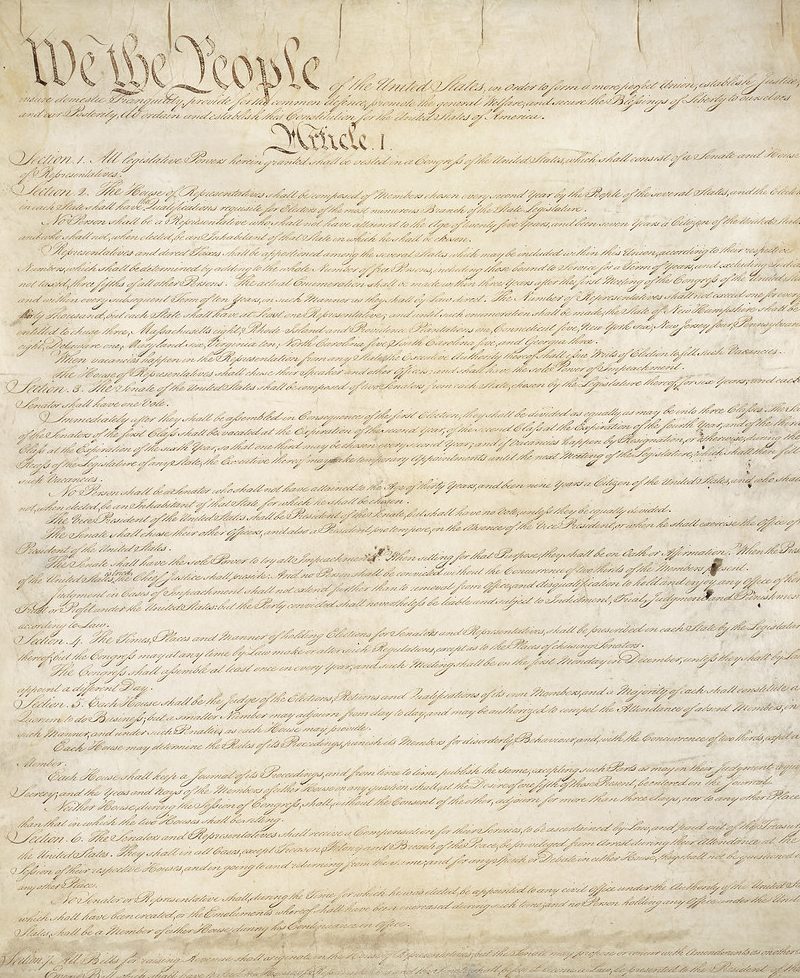 We the People of the United States, in Order to form a more perfect Union, establish Justice,
insure domestic Tranquility, provide for the common defence, promote the general Welfare, and secure the Blessings of Liberty to ourselves
and our Posterity, do ordain and establish this Constitution for the United States of America.
Article. I.
Section. 1. All legislative Powers herein granted shall be vested in a Congress of the United States, which shall consist of a Senate and House
of Representatives.
Section. 2. The House of Representatives shall be composed of Members chosen every second Year by the People of the several States, and the Electors
in each State shall have the Qualifications requisite for Electors of the most numerous Branch of the State Legislature.
No Person shall be a Representative who shall not have attained to the Age of twenty five Years, and been seven Years a Citizen of the United States,
and who shall not, when elected, be an Inhabitant of that State in which he shall be chosen.
Representatives and direct Taxes shall be apportioned among the several States which may be included within this Union, according to their respective
Numbers, which shall be determined by adding to the whole Number of free Persons, including those bound to Service for a Term of Years, and excluding Indians
not taxed, three fifths of all other Persons. The actual Enumeration shall be made within three Years after the first Meeting of the Congress of the United States,
and within every subsequent Term of ten Years, in such Manner as they shall by Law direct. The Number of Representatives shall not exceed one for every
thirty Thousand, but each State shall have at Least one Representative; and until such enumeration shall be made, the State of New Hampshire shall be
entitled to chuse three, Massachusetts eight, Rhode-Island and Providence Plantations one, Connecticut five, New-York six, New Jersey four, Pennsylvania
eight, Delaware one, Maryland six, Virginia ten, North Carolina five, South Carolina five, and Georgia three.
When vacancies happen in the Representation from any State, the Executive Authority thereof shall issue Writs of Election to fill such Vacancies.
The House of Representatives shall chuse their Speaker and other Officers; and shall have the sole Power of Impeachment.
Section. 3. The Senate of the United States shall be composed of two Senators from each State, chosen by the Legislature thereof, for six Years; and each
Senator shall have one Vote.
Immediately after they shall be assembled in Consequence of the first Election, they shall be divided as equally as may be into three Classes. The Seats
of the Senators of the first Class shall be vacated at the Expiration of the second Year, of the second Class at the Expiration of the fourth Year, and of the third
Class at the Expiration of the sixth Year, so that one third may be chosen every second Year; and if Vacancies happen by Resignation, or otherwise, during the
Recess of the Legislature of any State, the Executive thereof may make temporary Appointments until the next Meeting of the Legislature, which shall then fill
such Vacancies.
No Person shall be a Senator who shall not have attained to the Age of thirty Years, and been nine Years a Citizen of the United States, and who shall
not, when elected, be an Inhabitant of that State for which he shall be chosen.
The Vice President of the United States shall be President of the Senate, but shall have no Vote, unless they be equally divided.
The Senate shall chuse their other Officers, and also a President pro tempore, in the Absence of the Vice President, or when he shall exercise the Office of
President of the United States.
The Senate shall have the sole Power to try all Impeachments. When sitting for that Purpose, they shall be on Oath or Affirmation. When the President
of the United States is tried, the Chief Justice shall preside: And no Person shall be convicted without the Concurrence of two thirds of the Members present.
Judgment in Cases of Impeachment shall not extend further than to removal from Office, and disqualification to hold and enjoy any Office of honor,
Trust or Profit under the United States: but the Party convicted shall nevertheless be liable and subject to Indictment, Trial, Judgment and Punishment,
according to Law.
Section. 4. The Times, Places and Manner of holding Elections for Senators and Representatives, shall be prescribed in each State by the Legislature
thereof; but the Congress may at any time by Law make or alter such Regulations, except as to the Places of chusing Senators.
The Congress shall assemble at least once in every Year, and such Meeting shall be on the first Monday in December, unless they shall by Law
appoint a different Day.
Section. 5. Each House shall be the Judge of the Elections, Returns and Qualifications of its own Members, and a Majority of each shall constitute a
Quorum to do Business; but a smaller Number may adjourn from day to day, and may be authorized to compel the Attendance of absent Members, in
such Manner, and under such Penalties as each House may provide.
Each House may determine the Rules of its Proceedings, punish its Members for disorderly Behaviour, and, with the Concurrence of two thirds, expel a
Member.
Each House shall keep a Journal of its Proceedings, and from time to time publish the same, excepting such Parts as may in their Judgment require
Secrecy; and the Yeas and Nays of the Members of either House on any question shall, at the Desire of one fifth of those Present, be entered on the Journal.
Neither House, during the Session of Congress, shall, without the Consent of the other, adjourn for more than three days, nor to any other Place
than that in which the two Houses shall be sitting.
Section. 6. The Senators and Representatives shall receive a Compensation for their Services, to be ascertained by Law, and paid out of the Treasury
the United States. They shall in all Cases, except Treason, Felony and Breach of the Peace, be privileged from Arrest during their Attendance at the
Session of their respective Houses, and in going to and returning from the same; and for any Speech or Debate in either House, they shall not be questioned in
any other Place.
No Senator or Representative shall, during the Time for which he was elected, be appointed to any civil Office under the Authority of the United States,
which shall have been created, or the Emoluments whereof shall have been encreased during such time; and no Person holding any Office under the United
States, shall be a Member of either House during his Continuance in Office.
Section. 7. All Bills for raising Revenue shall originate in the House of Representatives; but the Senate may propose or concur with Amendments as on other